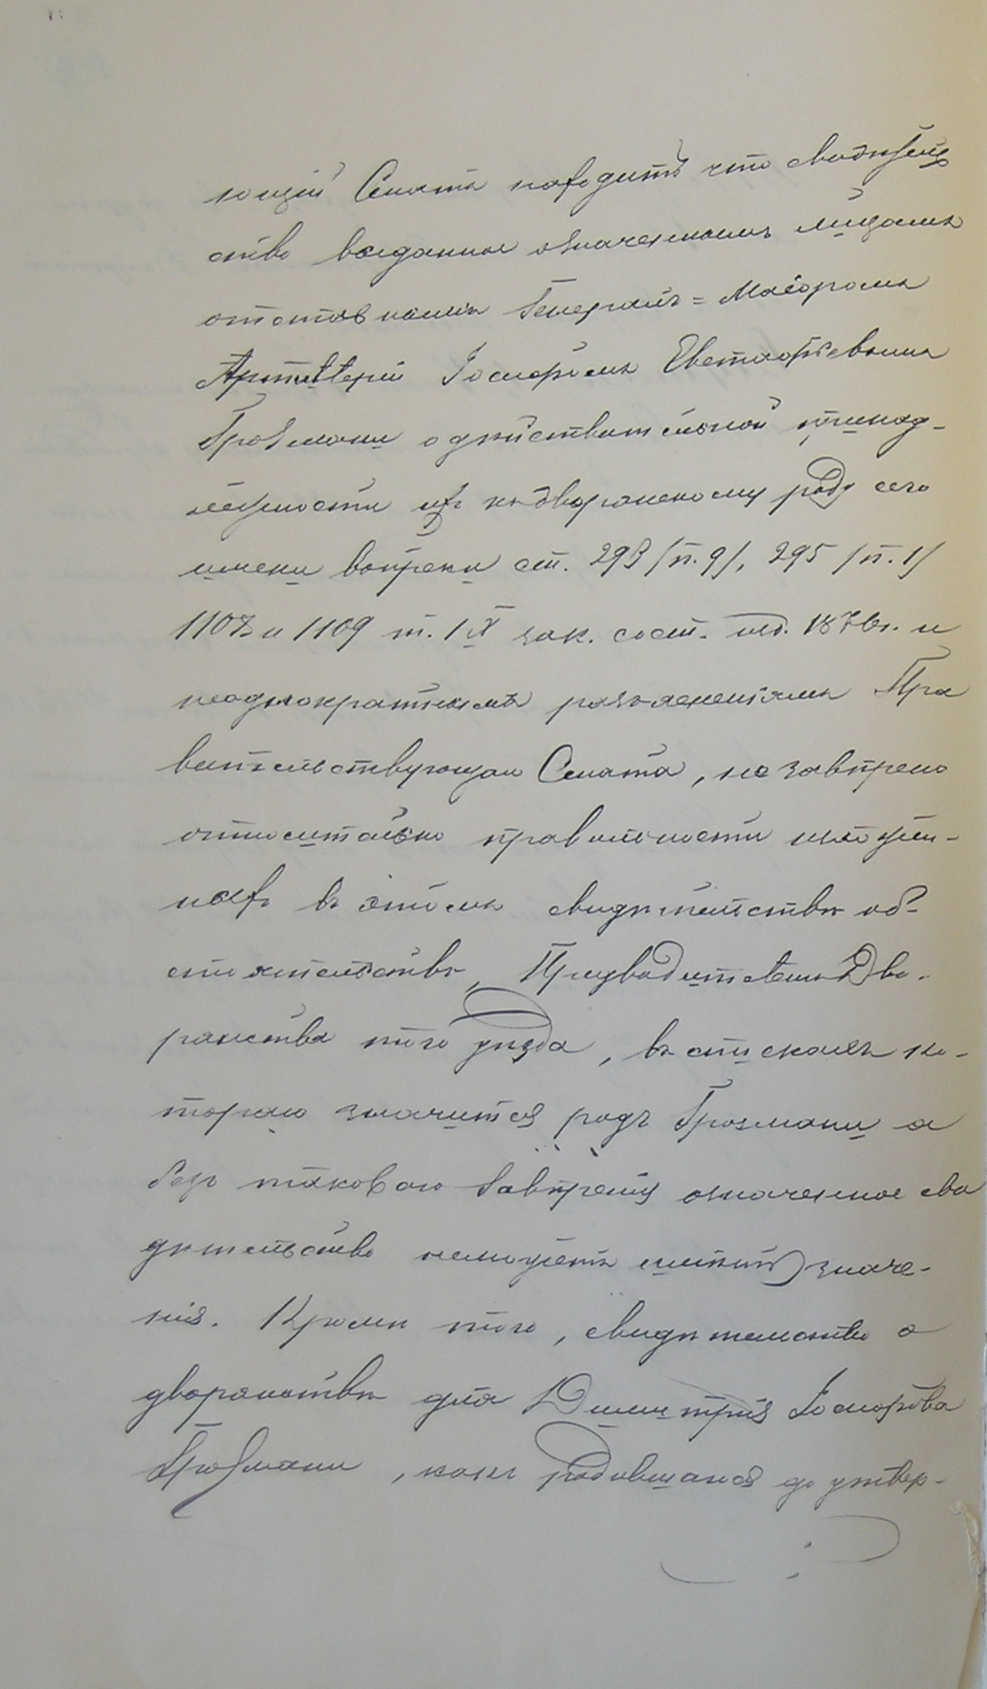 ющій Сенатъ находитъ что свидѣтель
ство выданное означеннымъ лицамъ
отставнымъ Генералъ-Маіоромъ
Артиллеріи Іосифомъ Евстафіевымъ
Грозмани о дѣйствительной принад-
лежности ихъ къ дворянскому роду сего
имени вопреки ст. 293 /п. 9/, 295 /п. 1/
1107 и 1109 т. IX зак. сост. изд. 1876г. и
неоднократнымъ разъясненіямъ Пра
вительствующаго Сената, не завѣрено
относительно правильности изложен-
ныхъ въ этомъ свидѣтельствѣ об-
стоятельствъ, Предводителемъ Дво-
рянства того уѣзда, въ спискахъ ко-
тораго значится родъ Грозмани а
безъ таковаго завѣренія означенное сви
дѣтельство не можетъ имѣть значе-
нія. Кромѣ того, свидѣтельство о
дворянствѣ для Димитрія Іосифова
Грозмани, какъ родившагося до утвер-